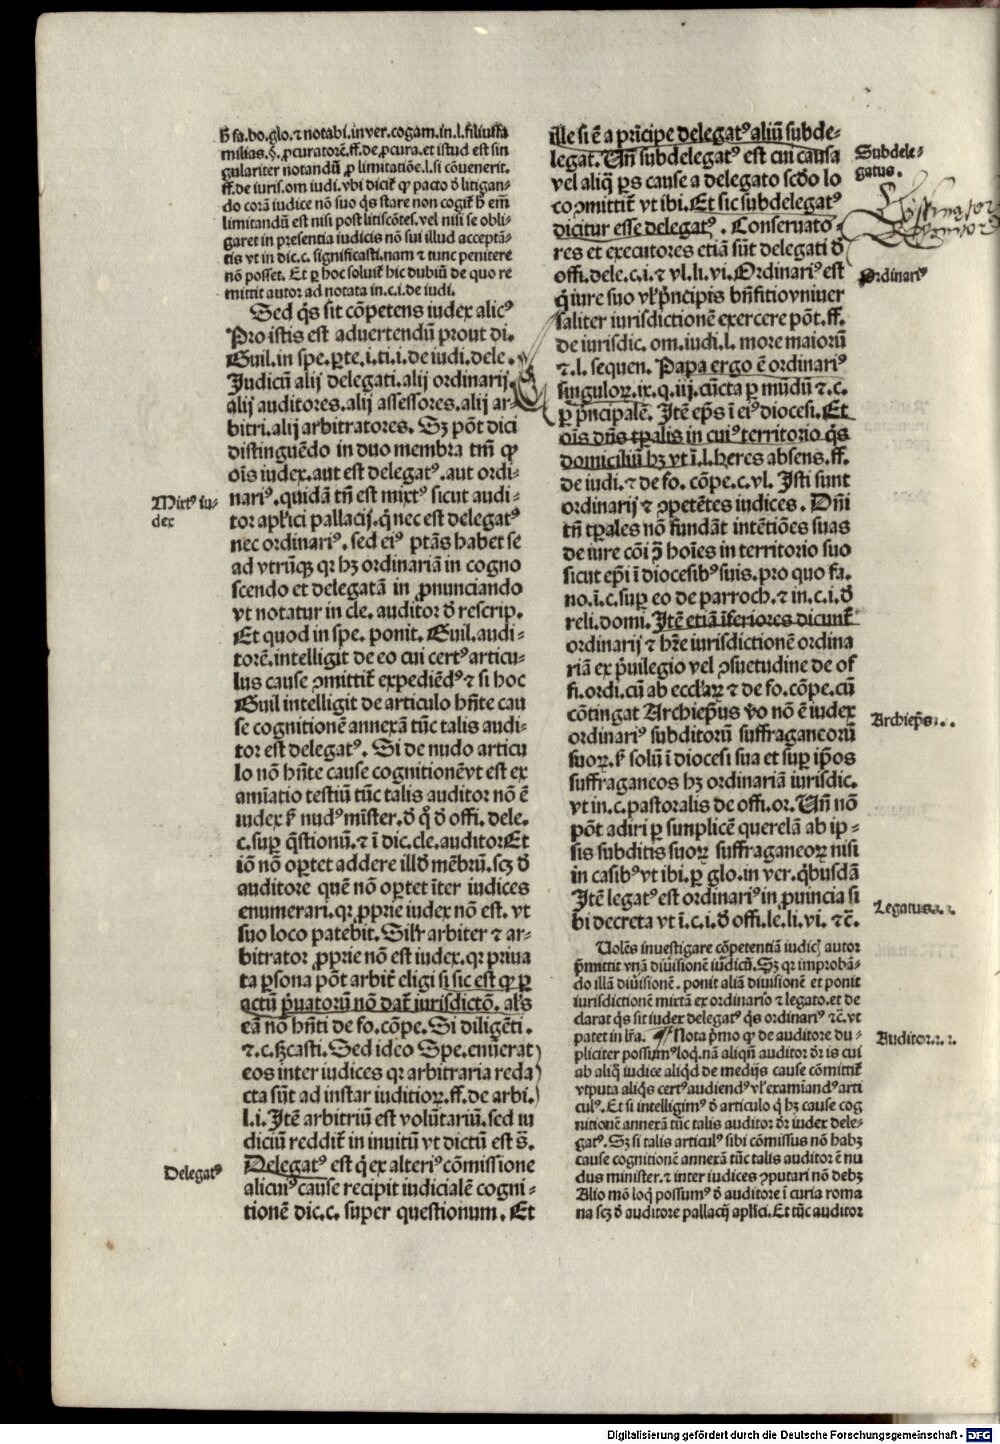 ħ sa.bo.glo.⁊ notabi.in ver.cogam.in.l.filiusfa
milias.§.ꝓcuratorē.ff.de ꝓcura.et istud est sin
gulariter notandū ꝓ limitatiōe.l.si cōuenerit.
ff.de iuris.om iudi.vbi dicit̄ ꝙ pacto ð litigan-
do corā iudice nō suo q̇s stare non cogit̄ ƀ em̄
limitandū est nisi post litiscōtes.vel nisi se obli-
garet in presentia iudicis nō sui illud acceptā-
tis vt in dic.c.significasti.nam ⁊ tunc penitere
nō posset. Et ꝑ hoc soluit̄ hic dubiū de quo re
mittit autor ad notata in.c.i.de iudi.
Sed q̇s sit cōpetens iudex alicꝰ
Pro istis est aduertendū prout di.
Guil.in spe.ꝑte.i.ti.i.de iudi.dele.
Judicū alij delegati.alij ordinarij
alij auditores.alij assessores.alij ar-
bitri.alij arbitratores. Sꝫ pōt dici
distinguēdo in duo membra tm̄ ꝙ
oīs iudex.aut est delegatꝰ.aut ordi-
nariꝰ.quidā tn̄ est mixtꝰ sicut audi-
Mixtꝰ iu-
dex
tor apl'ici pallacij.q̇ nec est delegatꝰ
nec ordinariꝰ.sed eiꝰ ptās habet se
ad vtrūqꝫ qꝛ hꝫ ordinariā in cogno
scendo et delegatā in ꝓnunciando
vt notatur in cle.auditor ð rescrip.
Et quod in spe. ponit. Guil.audi-
torē.intelligit de eo cui certꝰ articu-
lus cause ꝯmittit̄ expediēdꝰ ⁊ si hoc
Guil intelligit de articulo hn̄te cau
se cognitionē annexā tūc talis audi-
tor est delegatꝰ. Si de nudo articu
lo nō hn̄te cause cognitionē vt est ex
amīatio testiū tūc talis auditor nō ē
iudex sꝫ nudꝰ mīster.ð q̇ ð offi.dele.
c.suꝑ q̄stionū.⁊ ī dic.cle.auditor Et
iō nō oꝑtet addere illð mēbrū.scꝫ ð
auditore quē nō oꝑtet īter iudices
enumerari.qꝛ ꝓprie iudex nō est. vt
suo loco patebit. Silr̄ arbiter ⁊ ar-
bitrator ꝓprie nō est iudex.qꝛ priua
ta ꝑsona pōt arbit̄ eligi si sic est ꝙ ꝑ
actū p̄uatorū nō dat̄ iurisdictō. al's
eā nō hn̄ti de fo.cōpe. Si diligēti.
⁊.c.sg̅casti. Sed ideo Spe.enūerat
eos inter iudices qꝛ arbitraria reda
cta sūt ad instar iuditioꝝ.ff.de arbi.
l.i. Itē arbitriū est volūtariū.sed iu
diciū reddit̄ in inuitū vt dictū est s̄.
Delegatꝰ est q̇ ex alteriꝰ cōmissione
Delegatꝰ
alicuiꝰ cause recipit iudicialē cogni-
tionē dic.c. super questionum. Et
ille si ē a prīcipe delegatꝰ aliū subde-
legat. Vn̄ subdelegatꝰ est cui causa
Subdele-
gatus.
vel aliq̇ ꝑs cause a delegato scðo lo
co ꝯmittit̄ vt ibi. Et sic subdelegatꝰ
dicitur esse delegatꝰ. Conseruato-
res et executores etiā sūt delegati ð
offi.dele.c.i.⁊ vl.li.vi. Ordinariꝰ est
Ordinariꝰ
q̇ iure suo vl' p̄ncipis bn̄fitio vniuer
saliter iurisdictionē exercere pōt.ff.
de iurisdic.om.iudi.l.more maiorū
⁊.l.sequen. Papa ergo ē ordinariꝰ
singuloꝝ.ix.q.iij.cūcta ꝑ mūdū ⁊.c.
ꝑ p̄ncipalē. Itē ep̄s ī eiꝰ diocesi. Et
oīs dn̄s tꝑalis in cuiꝰ territorio q̇s
domiciliū hꝫ vt ī.l.heres absens.ff.
de iudi.⁊ de fo.cōpe.c.vl. Isti sunt
ordinarij ⁊ ꝯpetētes iudices. Dn̄i
tn̄ tꝑales nō fundāt intētiōes suas
de iure cōi ꝯ̄ hoīes in territorio suo
sicut ep̄i ī diocesibꝰ suis.pro quo fa.
no.ī.c.suꝑ eo de parroch.⁊ in.c.i.ð
reli.domi. Itē etiā īferiores dicunt̄
ordinarij ⁊ hr̄e iurisdictionē ordina
riā ex p̄uilegio vel ꝯsuetudine de of
fi.ordi.cū ab eccl'aꝝ ⁊ de fo.cōpe.cū
cōtingat Archiep̄us v̊o nō ē iudex
Archiep̄s
ordinariꝰ subditorū suffraganeorū
suoꝝ.sꝫ solū ī diocesi sua et suꝑ ip̄os
suffraganeos hꝫ ordinariā iurisdic.
vt in.c.pastoralis de offi.or. Vn̄ nō
pōt adiri ꝑ simplicē querelā ab ip-
sis subditis suoꝝ suffraganeoꝝ nisi
in casibꝰ vt ibi.ꝑ glo.in ver.q̇busdā
Itē legatꝰ est ordinariꝰ in ꝓuincia si
Legatus
bi decreta vt ī.c.i.ð offi.le.li.vi. ⁊c̄.
Volēs inuestigare cōpetentiā iudicꝭ autor
p̄mittit vnā diuisionē iudicū. Sꝫ qꝛ improbā-
do illā diuisionē. ponit aliā diuisionē et ponit
iurisdictionē mixtā ex ordinario ⁊ legato.et de
clarat q̇s sit iudex delegatꝰ q̇s ordinariꝰ ⁊c̄.vt
patet in lr̄a. ¶ Nota p̄mo ꝙ de auditore du-
Auditor
pliciter possumꝰ loq̇.nā aliqn̄ auditor ðr is cui
ab aliq̇ iudice aliqd de medijs cause cōmittit̄
vtputa aliq̇s certꝰ audiendꝰ vl' examīandꝰ arti
culꝰ. Et si intelligimꝰ ð articulo q̇ hꝫ cause cog
nitionē annexā tūc talis auditor ðr iudex dele-
gatꝰ. Sꝫ si talis articulꝰ sibi cōmissus nō habꝫ
cause cognitionē annexā tūc talis auditor ē nu
dus minister.⁊ inter iudices ꝯputari nō debꝫ
Alio mō loq̇ possumꝰ ð auditore ī curia roma
na scꝫ ð auditore pallacij apl'ici. Et tūc auditor
Digitalisierung gefördert durch die Deutsche Forschungsgemeinschaft - DFG